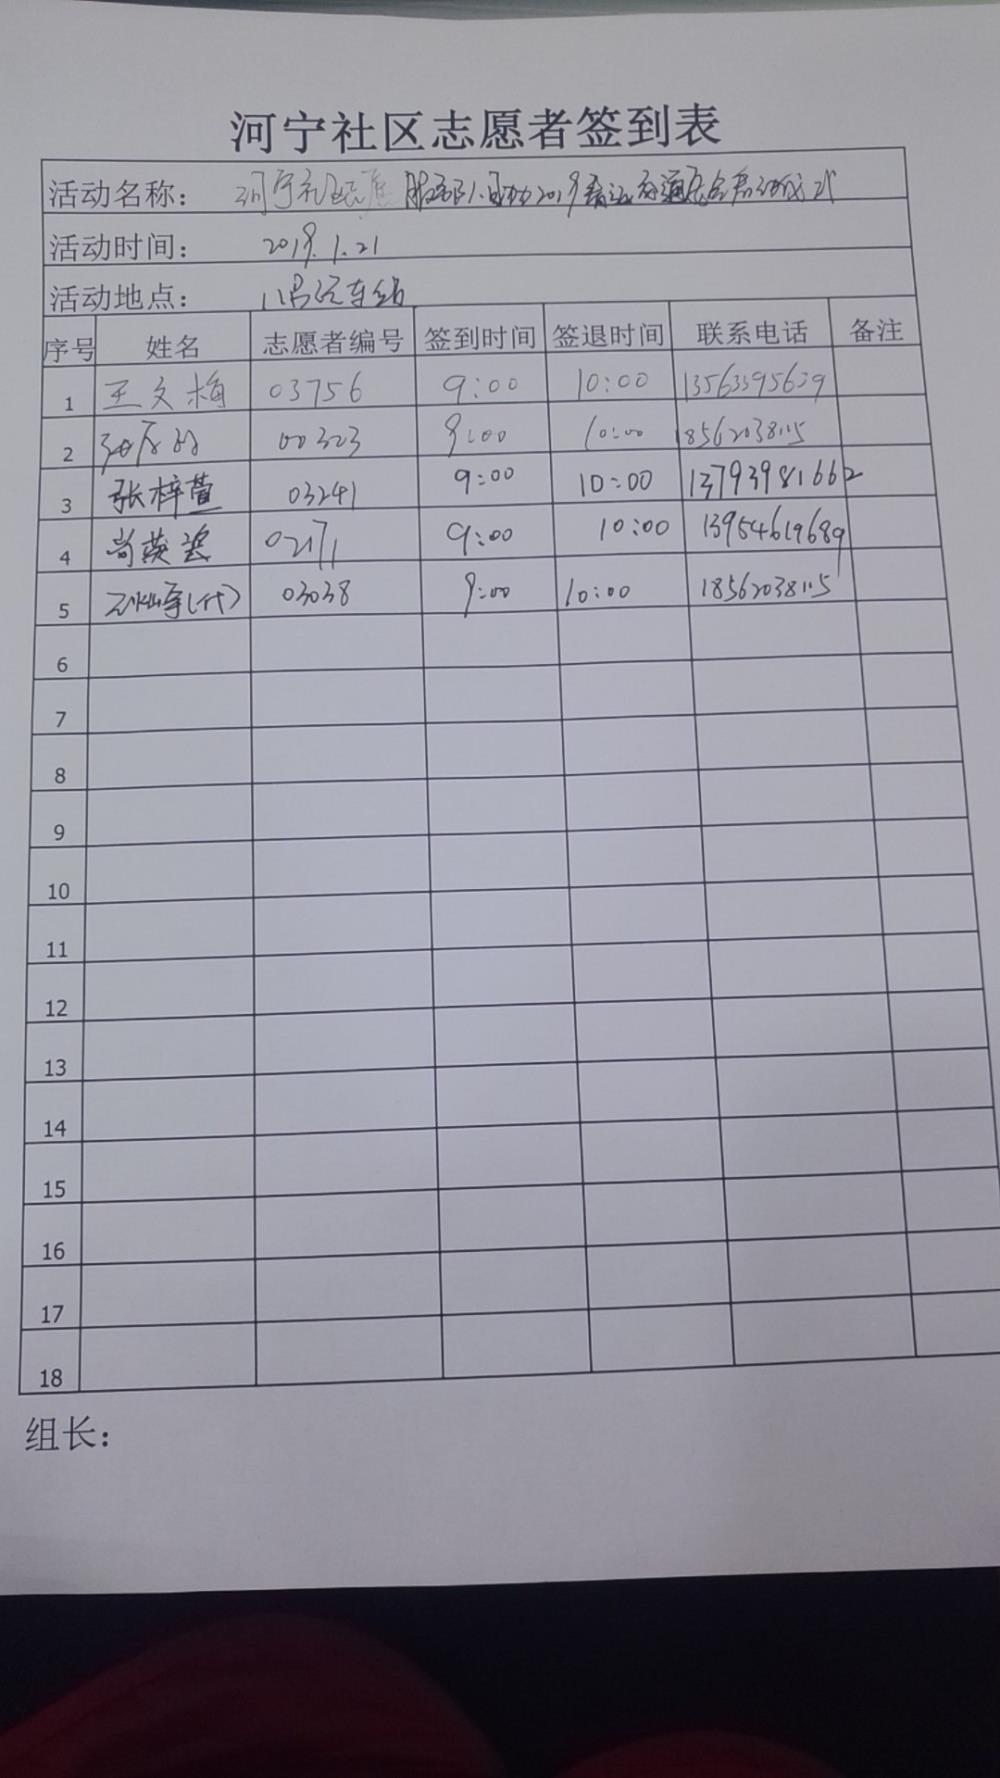 河宁社区志愿者签到表
活动名称： 河宁社区志愿服务队 2019春运 启动仪式
活动时间： 2019.1.21
活动地点： 汽车站
序号 姓名 志愿者编号 签到时间 签退时间 联系电话 备注
1 王文梅 03756 9:00 10:00
2 00323 9:00 10:00 18562038115
3 张梓萱 03241 9:00 10:00 13793981662
4 尚英 02171 9:00 10:00 13954619689
5 03038 9:00 10:00 18562038115
6
7
8
9
10
11
12
13
14
15
16
17
18
组长：